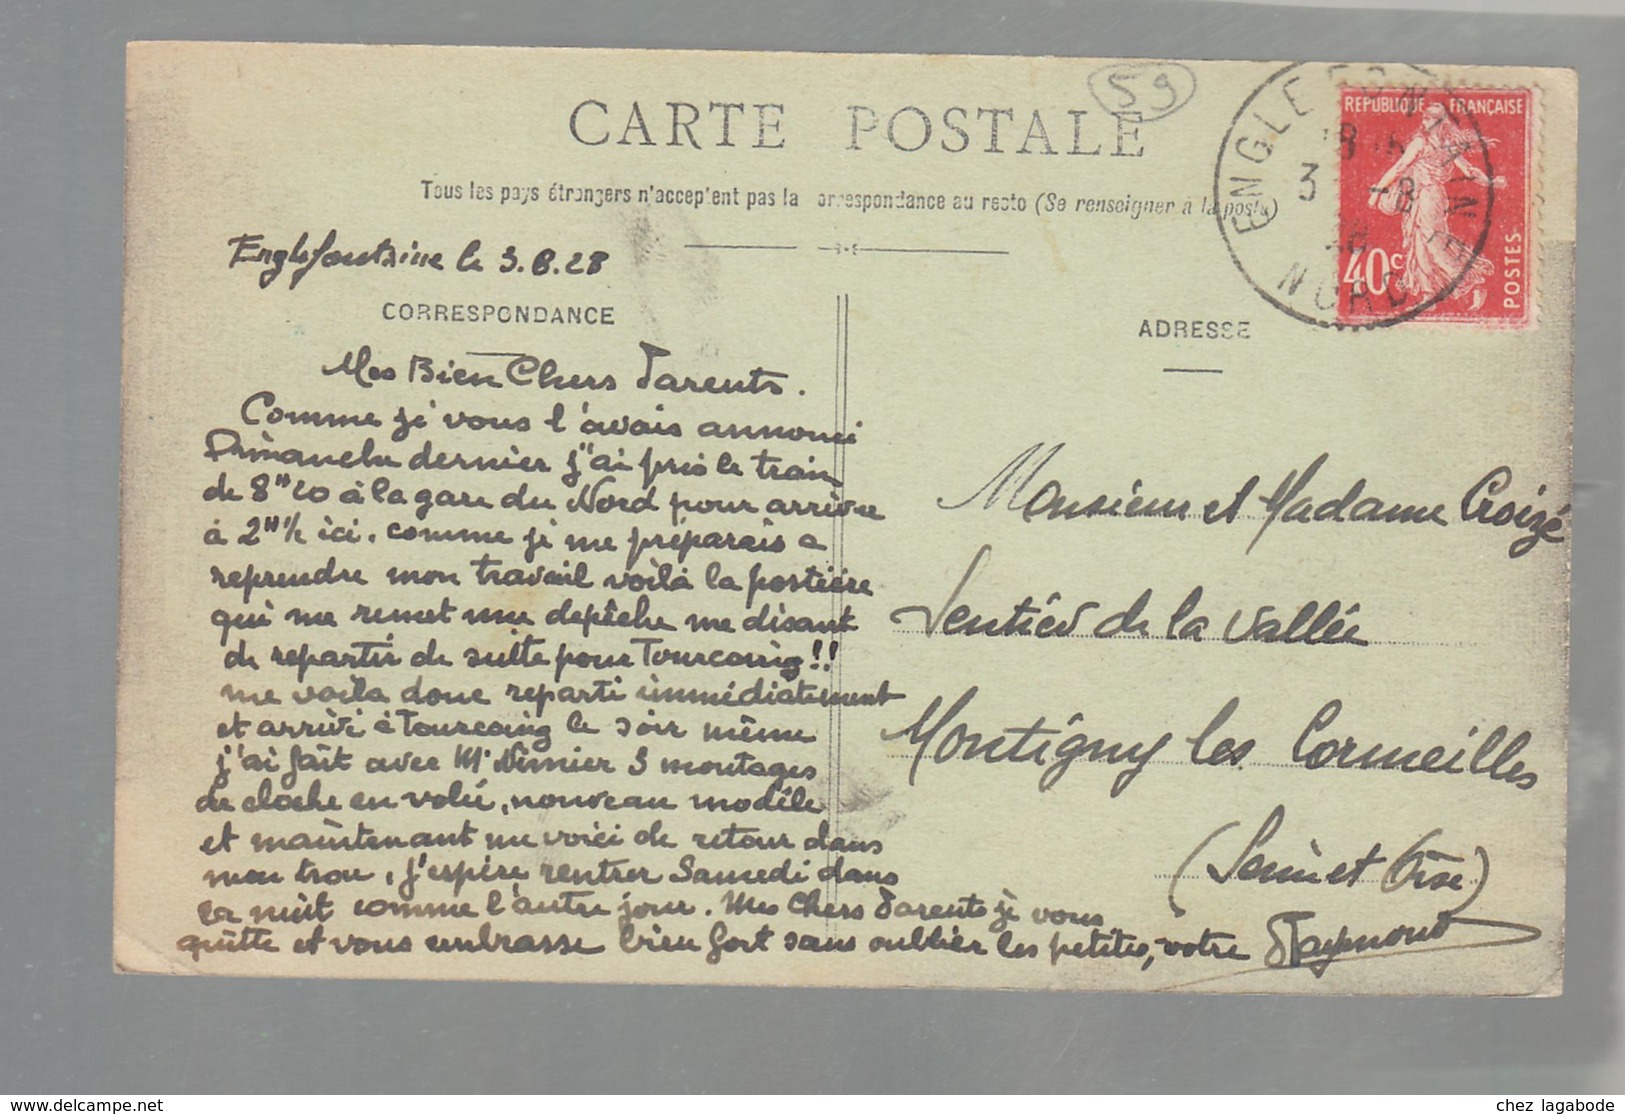 59
CARTE POSTALE
Tous les pays étrangers n'acceptent pas la correspondance au recto (Se renseigner à la poste)
ENGLEFONTAINE
3 -8
28
NORD
REPUBLIQUE FRANÇAISE
40c
POSTES
Englefontaine le 3.8.28
CORRESPONDANCE
ADRESSE
Mes Bien Chers Parents.
Comme je vous l'avais annoncé
Dimanche dernier j'ai pris le train
de 8H20 à la gare du Nord pour arriver
à 2H1/2 ici. comme je me préparais a
reprendre mon travail voilà la postière
qui me remet une depêche me disant
de repartir de suite pour Tourcoing!!
me voila donc reparti immédiatement
et arrivé à Tourcoing le soir même
j'ai fait avec Mr Nimier 3 montages
de cloche en volée, nouveau modèle
et maintenant me voici de retour dans
mon trou, j'espère rentrer Samedi dans
la nuit comme l'autre jour. Mes Chers Parents je vous
quitte et vous embrasse bien fort sans oublier les petites, votre Raymond
Monsieur et Madame Croizé
Sentier de la Vallée
Montigny les Cormeilles
(Seine et Oise)
www.delcampe.net
chez lagabode